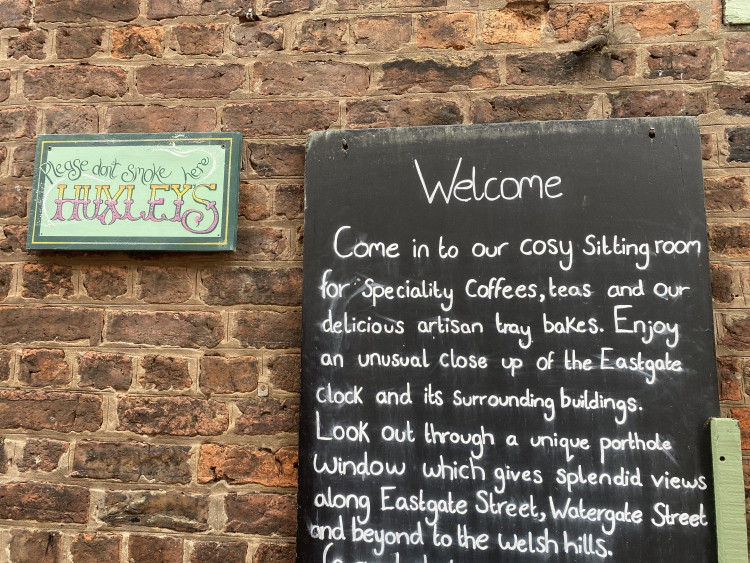 Please don't smoke here
HUXLEYS
Welcome
Come in to our cosy Sitting room
for Speciality Coffees, teas and our
delicious artisan tray bakes. Enjoy
an unusual close up of the Eastgate
clock and its surrounding buildings.
Look out through a unique porthole
window which gives splendid views
along Eastgate Street, Watergate Street
and beyond to the welsh hills.